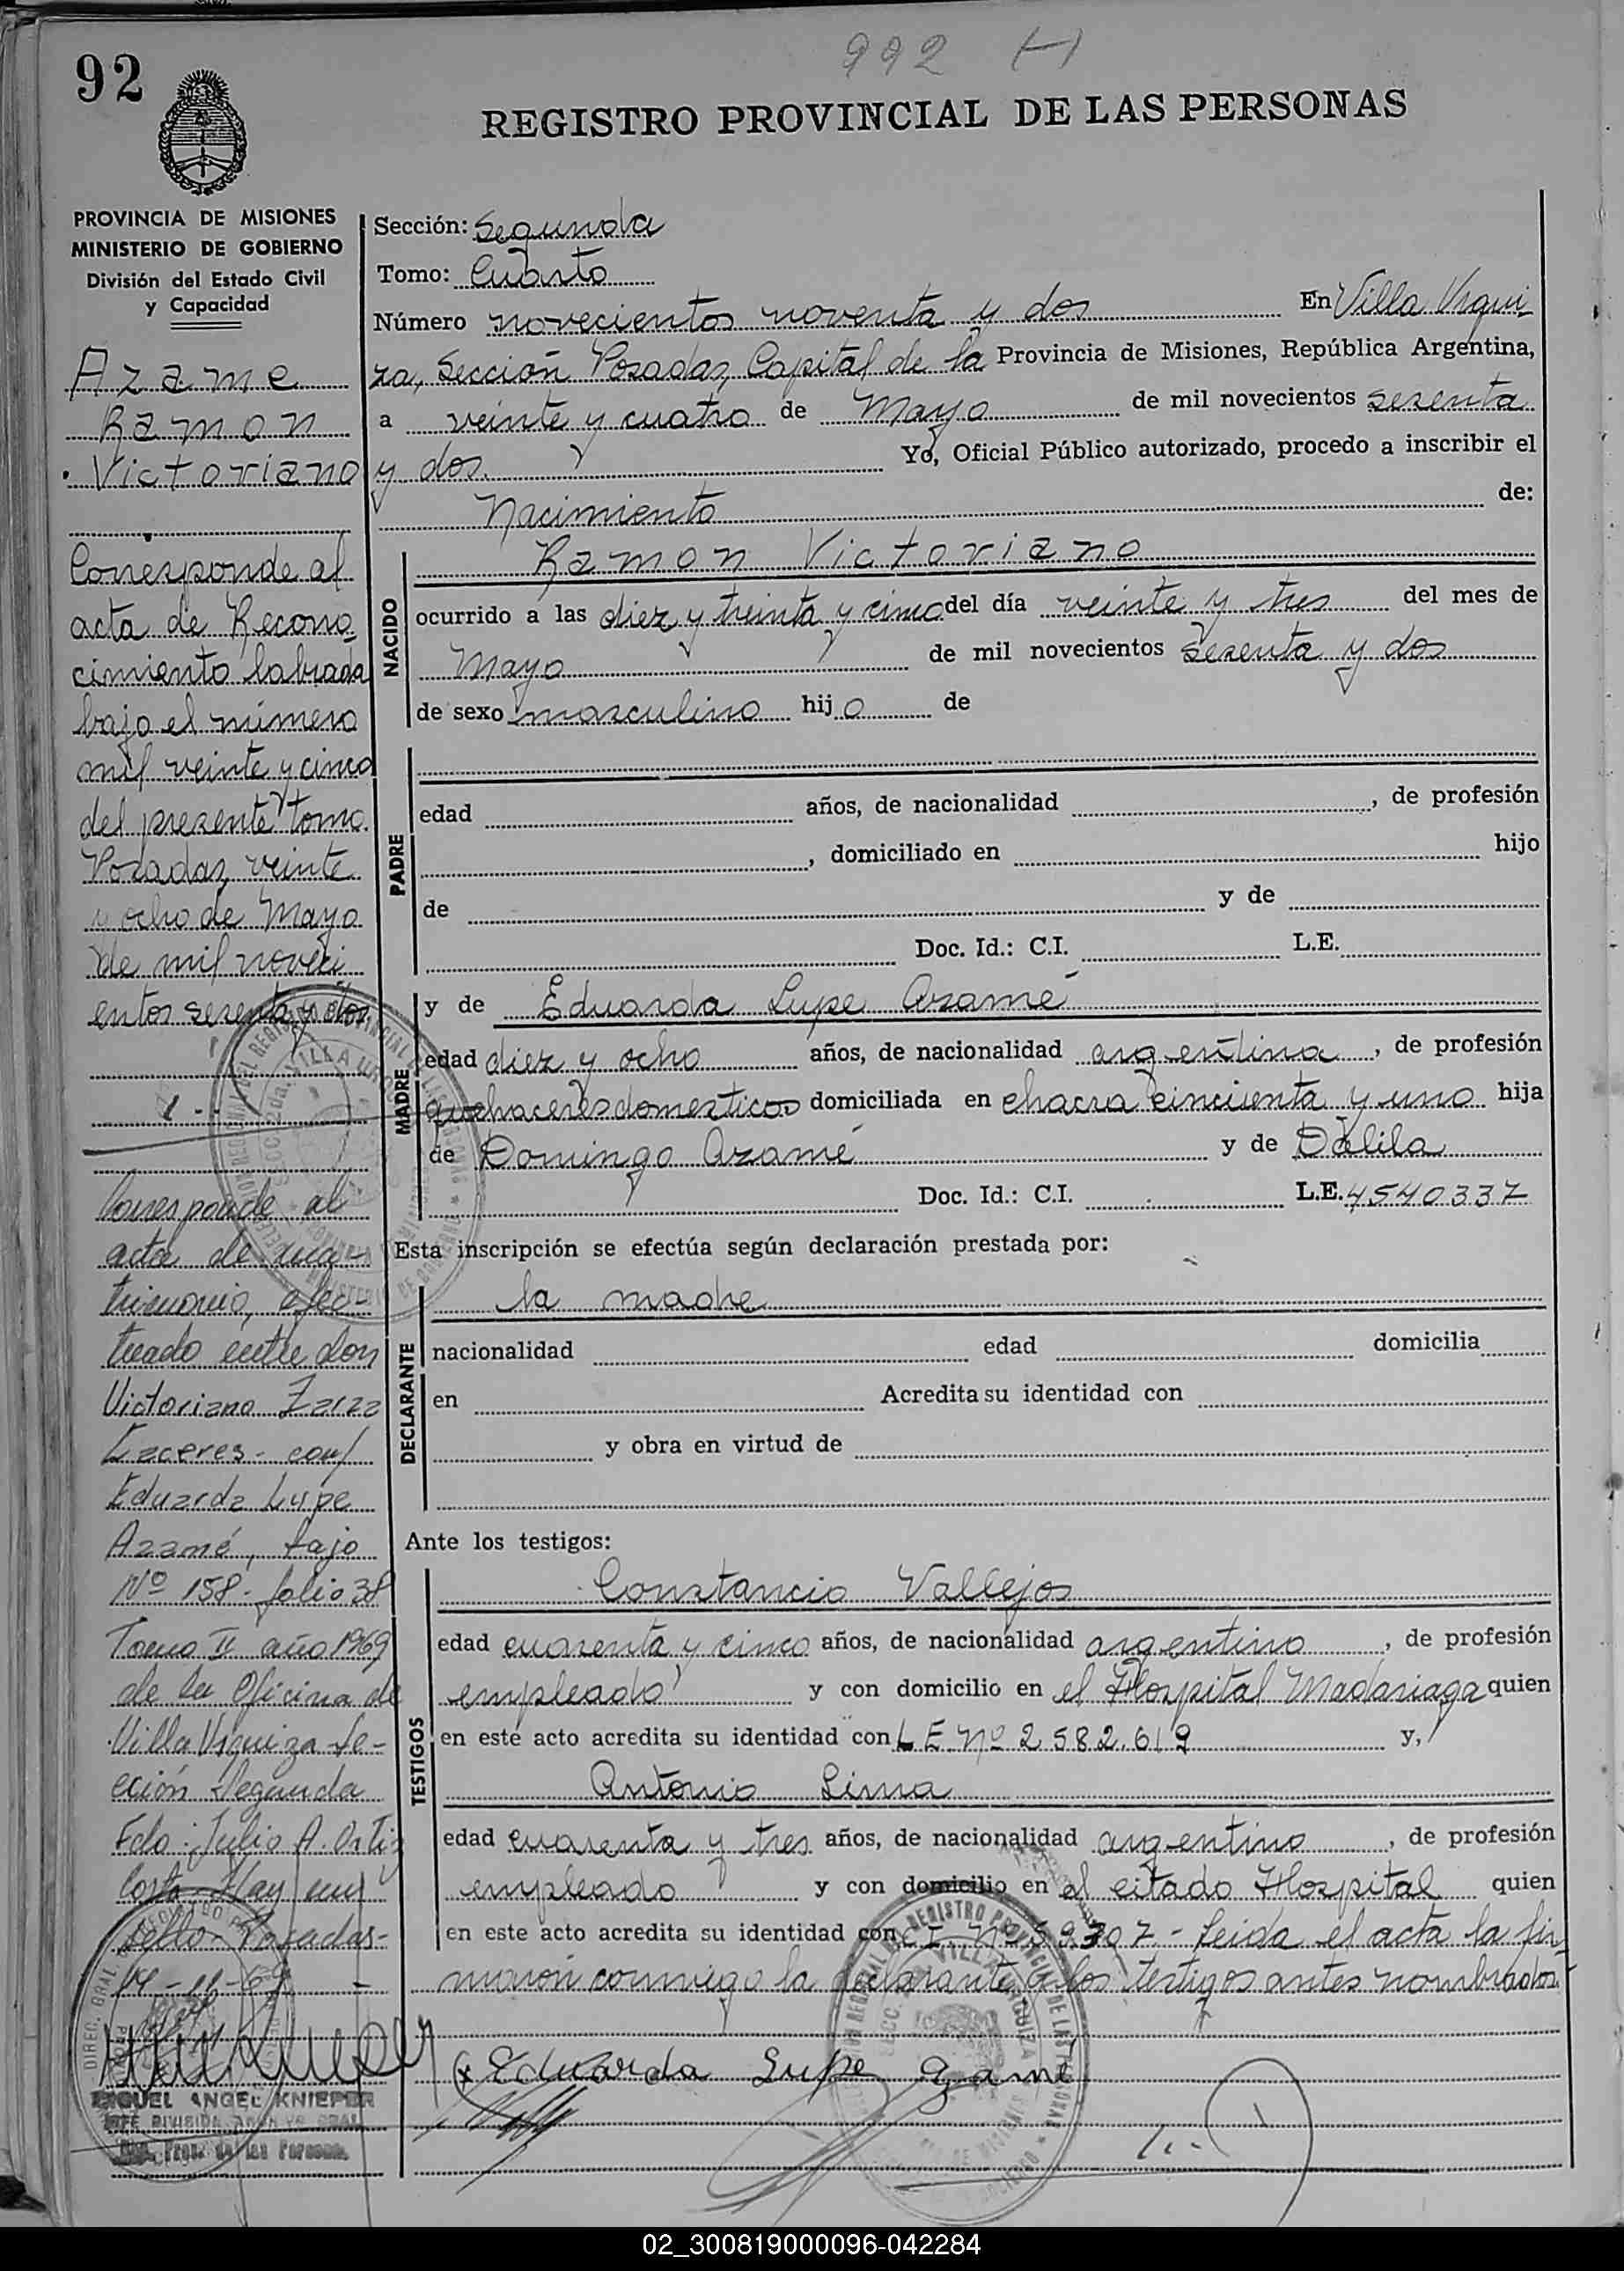 992 (-)
92
REGISTRO PROVINCIAL DE LAS PERSONAS
PROVINCIA DE MISIONES
MINISTERIO DE GOBIERNO
División del Estado Civil
y Capacidad
Azame
Ramon
Victoriano
Corresponde al
acta de Recono
cimiento labrada
bajo el número
mil veinte y cinco
del presente tomo.
Posadas, veinte
y ocho de Mayo
de mil noveci
entos sesenta y dos
Corresponde al
acta de ma-
trimonio, efec-
tuado entre don
Victoriano Zarza
Caceres - con/
Eduarda Lupe
Azamé, bajo
Nº 158 - folio 38
Tomo II año 1969
de la Oficina de
Villa Urquiza Se-
cción Segunda
Fdo: Julio A. Ortiz
Costa - Hay un
Sello - Posadas -
14-11-69 -
MIGUEL ANGEL KNIEPER
Sección: Segunda
Tomo: Cuarto
Número novecientos noventa y dos En Villa Urqui
za, Sección Posadas, Capital de la Provincia de Misiones, República Argentina,
a veinte y cuatro de Mayo de mil novecientos sesenta
y dos. Yo, Oficial Público autorizado, procedo a inscribir el
Nacimiento de:
NACIDO
Ramon Victoriano
ocurrido a las diez y treinta y cinco del día veinte y tres del mes de
Mayo de mil novecientos sesenta y dos
de sexo masculino hijo de
PADRE
edad años, de nacionalidad , de profesión
, domiciliado en hijo
de y de
Doc. Id.: C.I. L.E.
MADRE
y de Eduarda Lupe Azamé
edad diez y ocho años, de nacionalidad argentina, de profesión
quehaceres domesticos domiciliada en chacra cincuenta y uno hija
de Domingo Azamé y de Dalila
Doc. Id.: C.I. L.E. 4540337
Esta inscripción se efectúa según declaración prestada por:
DECLARANTE
la madre
nacionalidad edad domicilia
en Acredita su identidad con
y obra en virtud de
Ante los testigos:
TESTIGOS
Constancio Vallejos
edad cuarenta y cinco años, de nacionalidad argentino, de profesión
empleado y con domicilio en el Hospital Madariaga quien
en este acto acredita su identidad con L E Nº 2.582.619 y,
Antonio Lima
edad cuarenta y tres años, de nacionalidad argentino, de profesión
empleado y con domicilio en el citado Hospital quien
en este acto acredita su identidad con C I Nº 59.307 - Leida el acta la fir
maron conmigo la declarante y los testigos antes nombrados
Eduarda Lupe Azamé
02_300819000096-042284